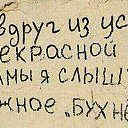 вдруг из ус
екрасной
мы я слыш
жное „бухн